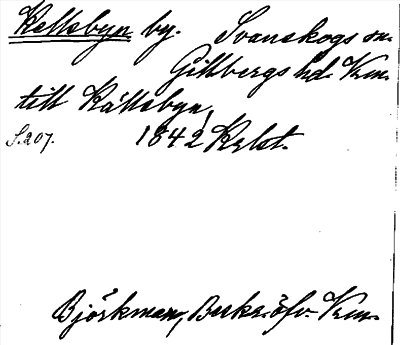 Kellsbyn by. Svanskogs sn.
Gillbergs hd. Vrm.
till Källsbyn,
S. 207. 1842 Krbt.
Björkman, Beskr. öfv. Vrm.